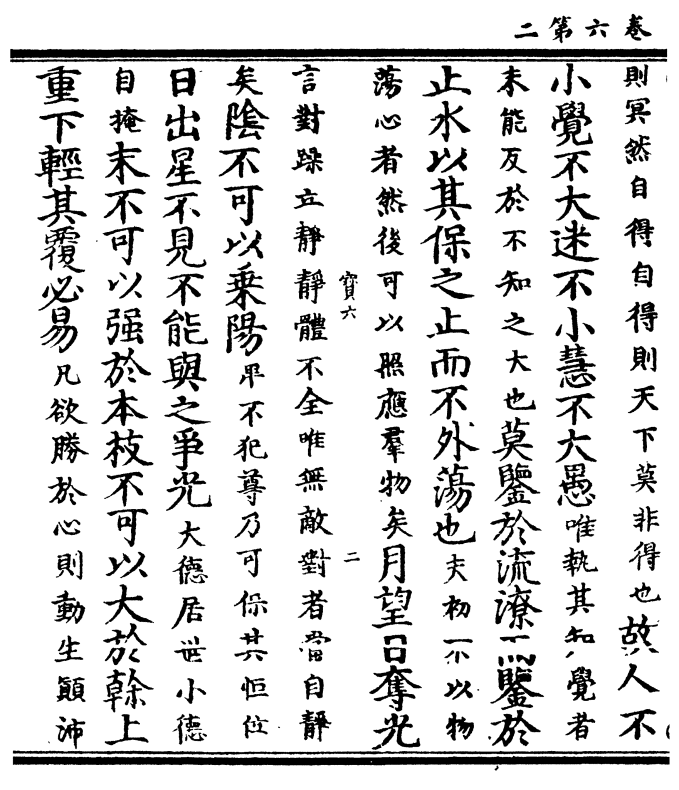 卷六第二
則冥然自得自得則天下莫非得也故人不
小覺不大迷不小慧不大愚唯執其知覺者
未能反於不知之大也莫鑒於流潦而鑒於
止水以其保之止而不外蕩也夫初不以物
蕩心者然後可以照應羣物矣月望日奪光
寶六
二
言對躁立靜靜體不全唯無敵對者當自靜
矣陰不可以乗陽卑不犯尊乃可保其恒位
日出星不見不能與之爭光大德居世小德
自掩末不可以强於本枝不可以大於榦上
重下輕其覆必易凡欲勝於心則動生顛沛